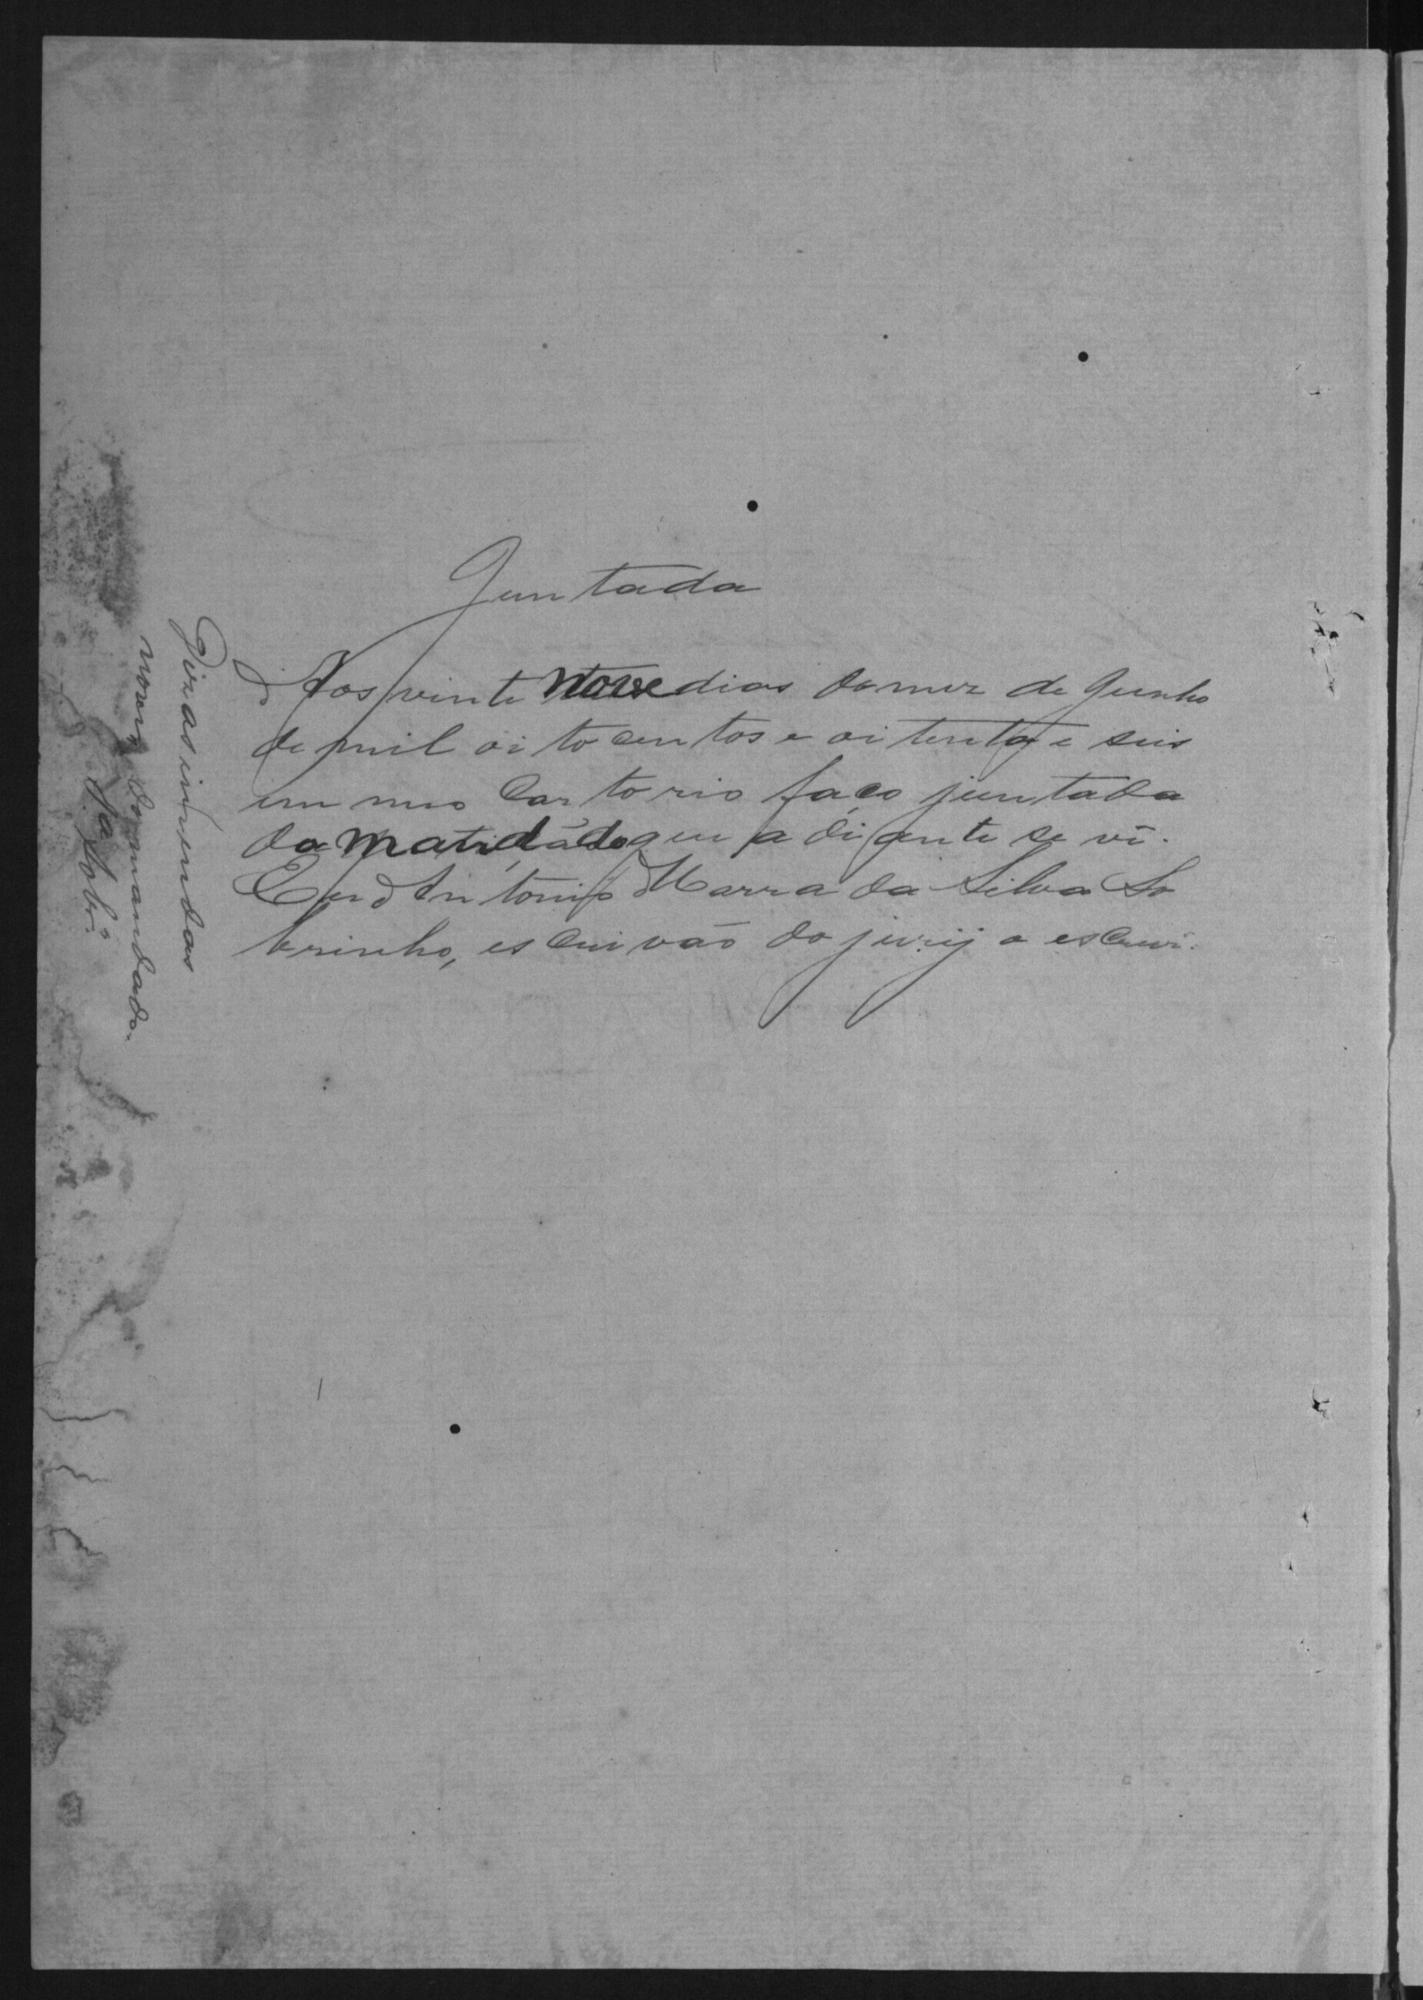 Juntada
Aos vinte nove dias do mez de Junho
de mil oito centos e oitenta e seis
em meo Cartorio faço juntada
do que a diante se vê.
Eu Antonio Marra da Silva So
brinho, escrivão do jury o escrevi.
Diz as imendas
nove do mandado.
Sa Sobº